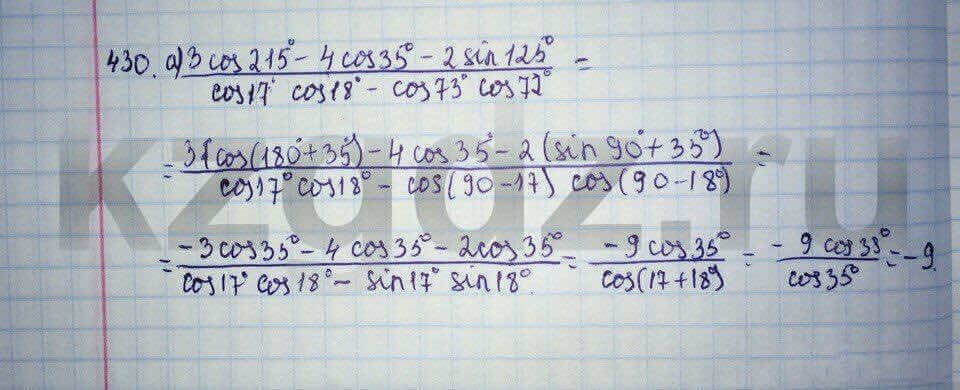 430. а) 3 cos 215° - 4 cos 35° - 2 sin 125° =
cos 17° cos 18° - cos 73° cos 72°
= 3 (cos (180° + 35°) - 4 cos 35° - 2 (sin 90° + 35°) =
cos 17° cos 18° - cos (90 - 17) cos (90 - 18°)
= -3 cos 35° - 4 cos 35° - 2 cos 35° = -9 cos 35° = - 9 cos 35° = -9.
cos 17° cos 18° - sin 17° sin 18° cos (17 + 18°) cos 35°
kzgdz.ru